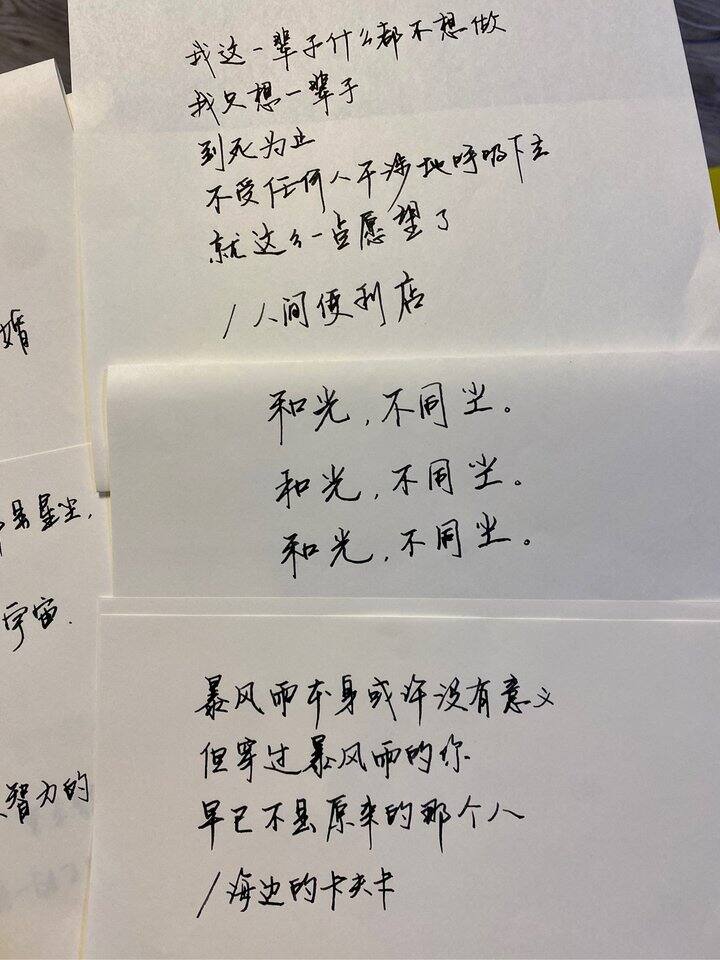 我这一辈子什么都不想做
我只想一辈子
到死为止
不受任何人干涉地呼吸下去
就这么一点愿望了
/人间便利店
婚
和光,不同尘。
和光,不同尘。
和光,不同尘。
是星尘,
宇宙.
智力的
暴风雨本身或许没有意义
但穿过暴风雨的你
早已不是原来的那个人
/海边的卡夫卡